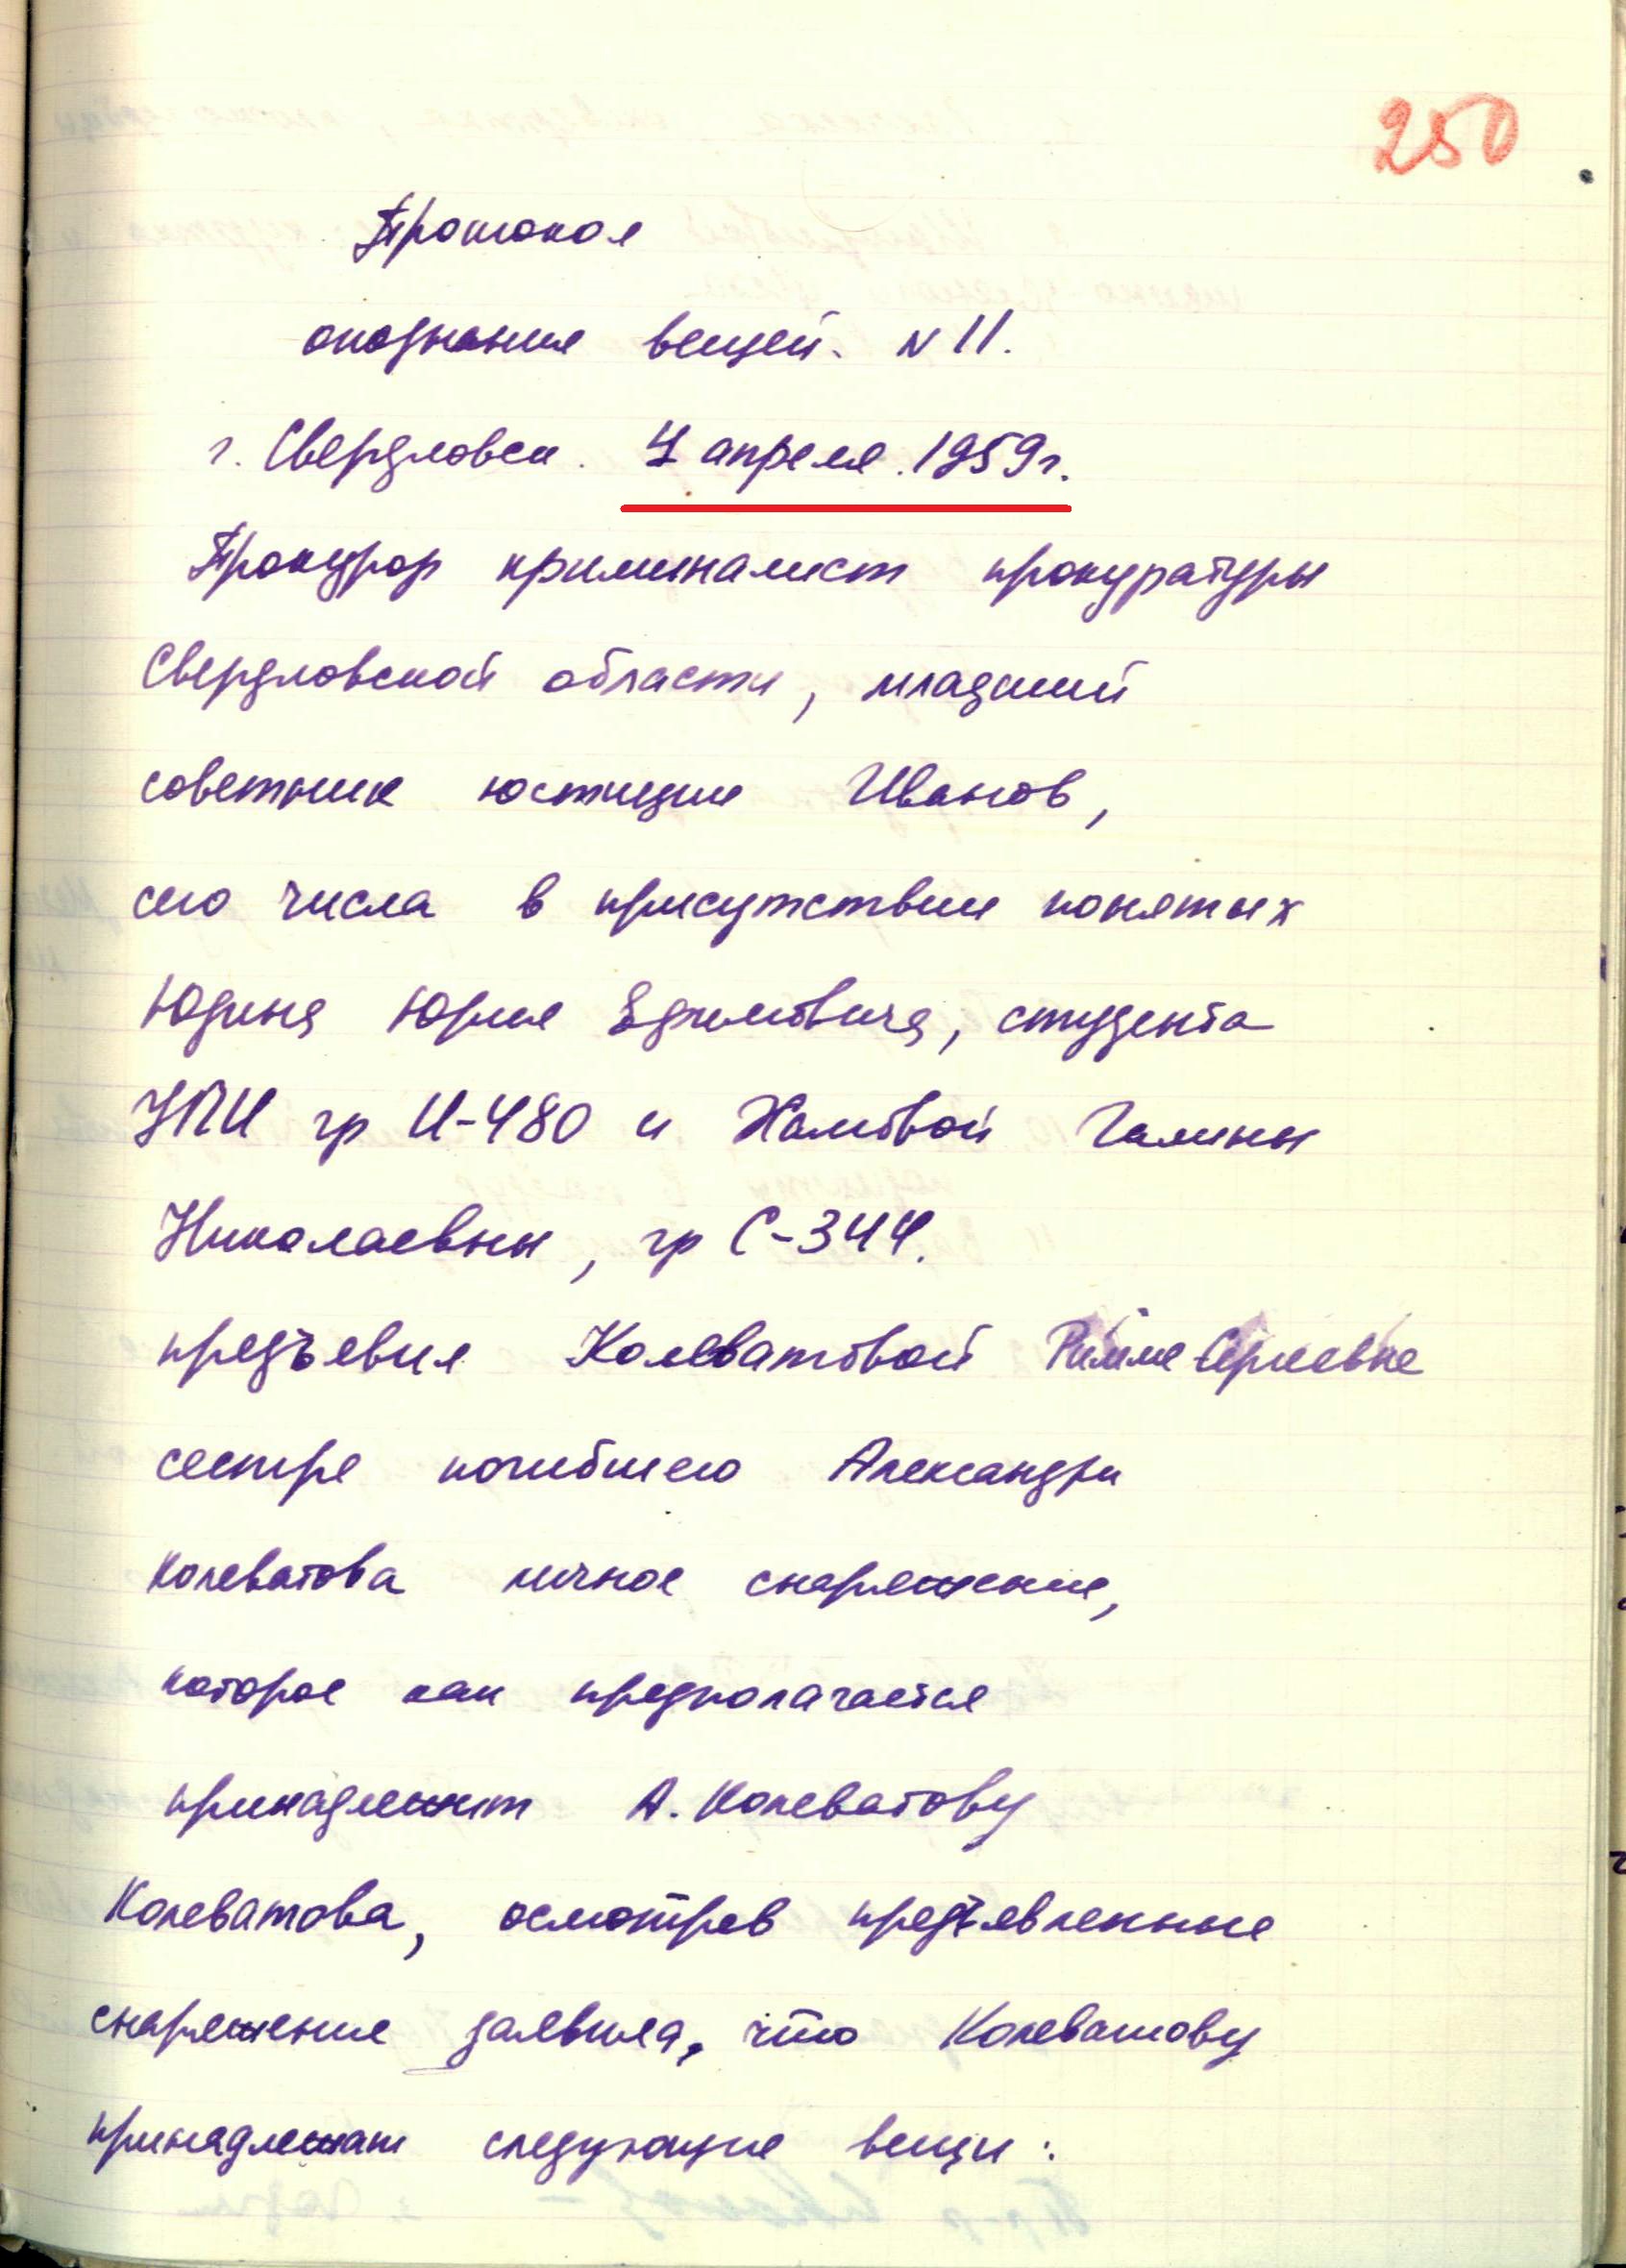 250
Протокол
опознания вещей. N 11.
г. Свердловск. 7 апреля. 1959г.
Прокурор криминалист прокуратуры
Свердловской области, младший
советник юстиции Иванов,
сего числа в присутствии понятых
Юдина Юрия Ефимовича, студента
УПИ гр И-480 и Хамовой Галины
Николаевны, гр С-344.
предъявил Колеватовой Римме Сергеевне
сестре погибшего Александра
Колеватова личное снаряжение,
которое как предполагается
принадлежит А. Колеватову
Колеватова, осмотрев предъявленные
снаряжение заявила, что Колеватову
принадлежат следующие вещи: